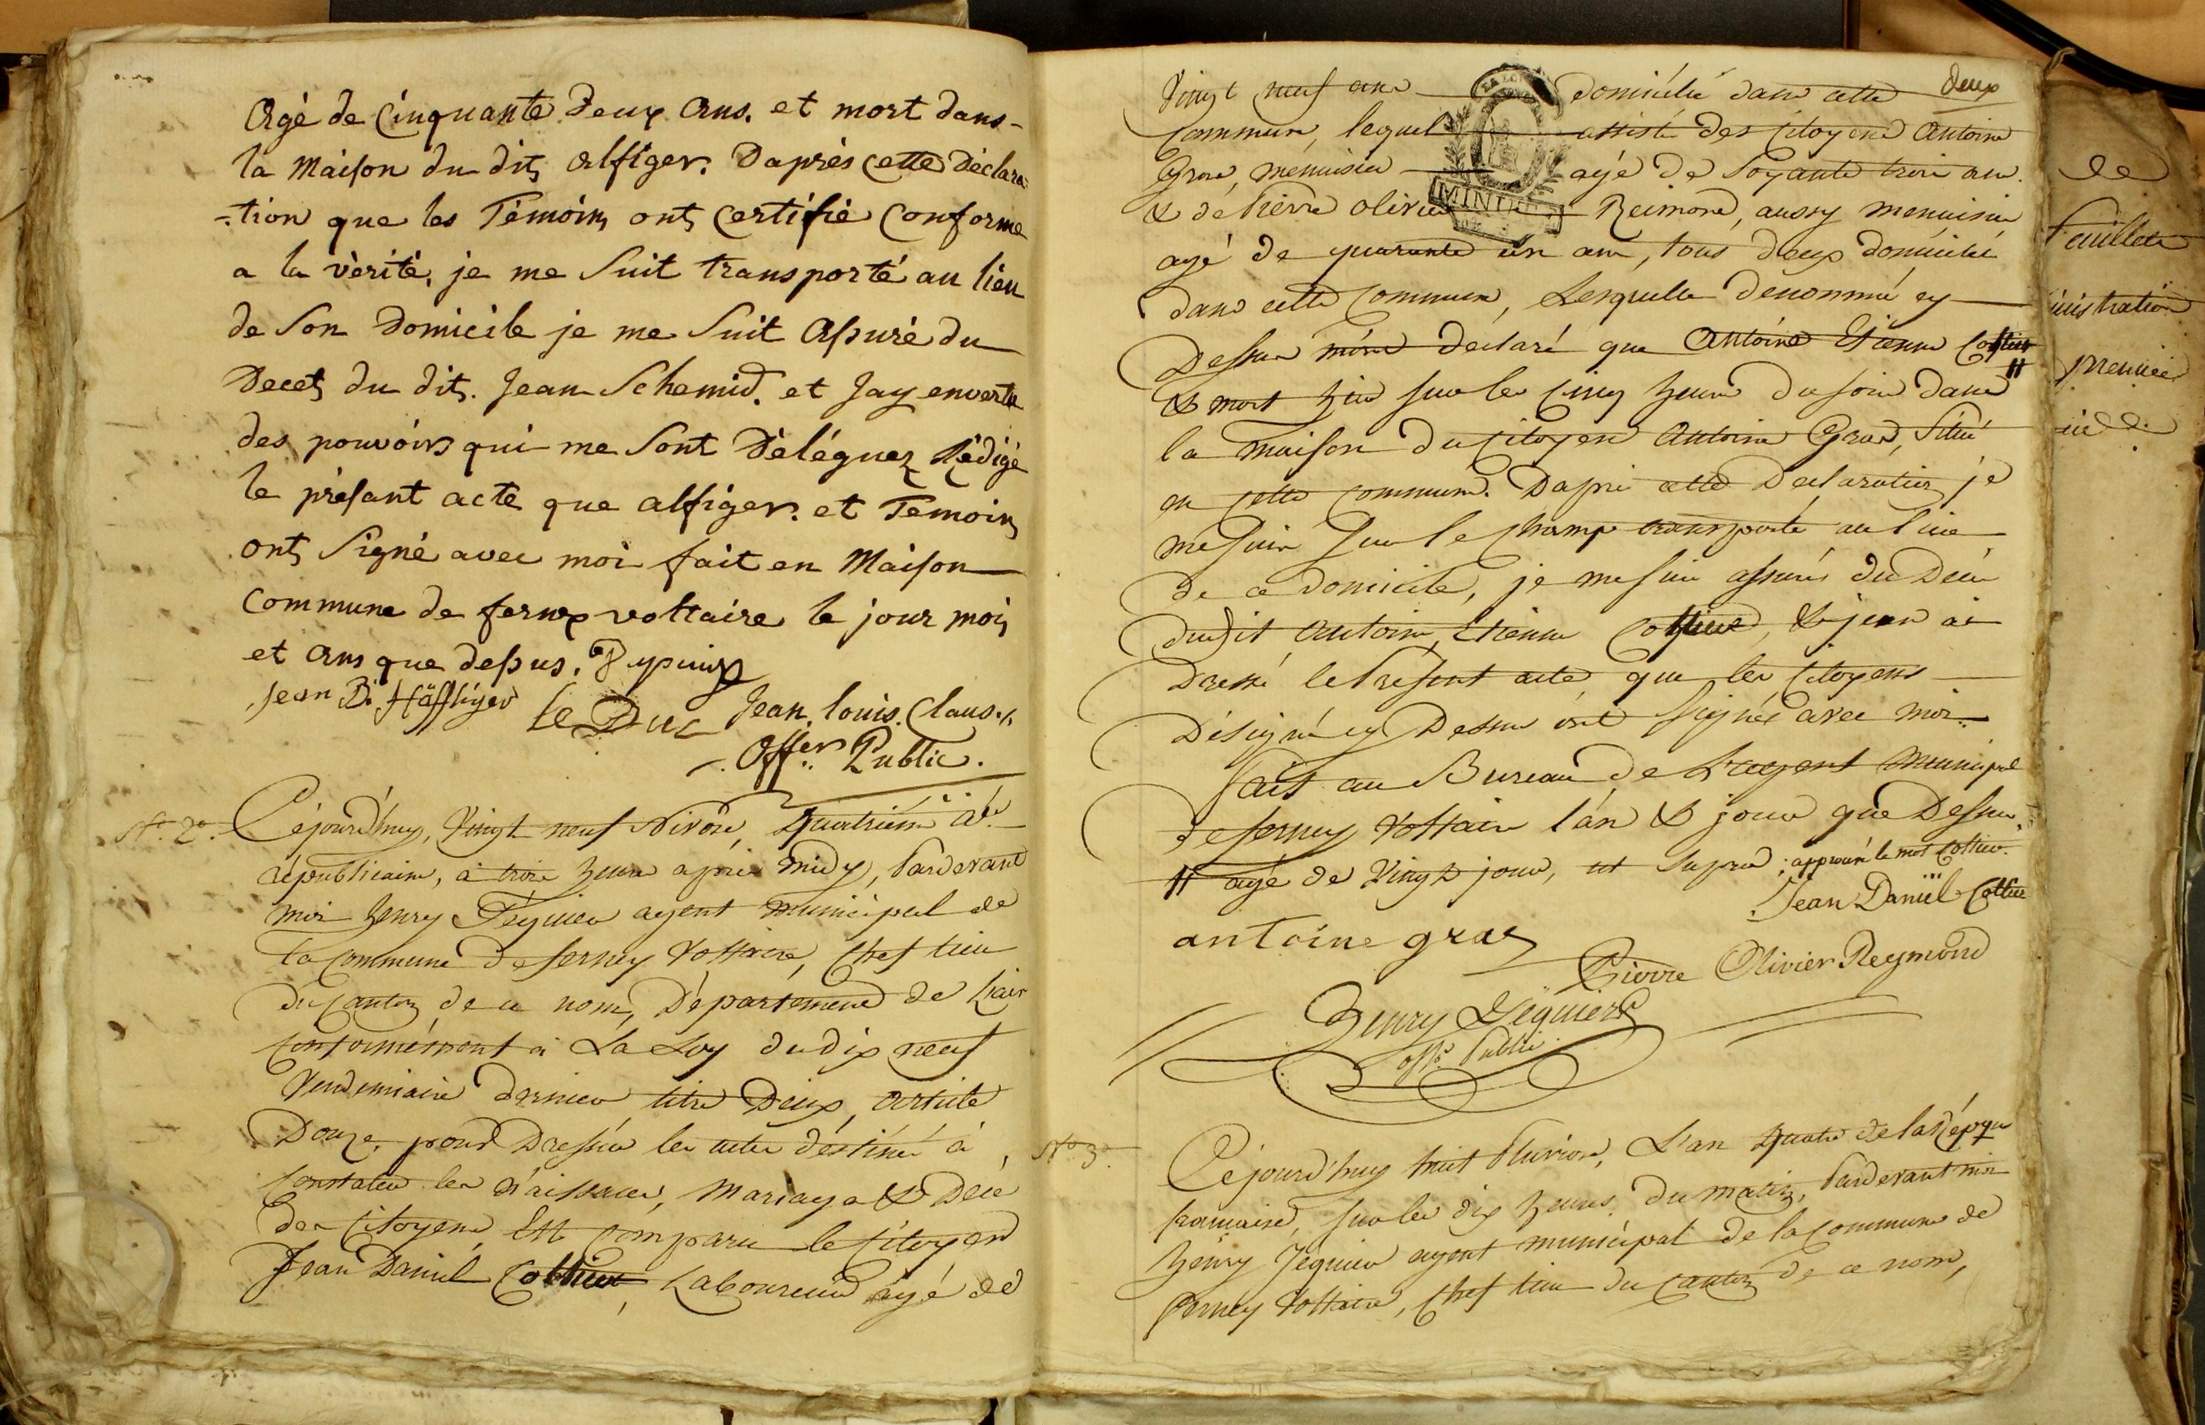 Agè de Cinquante Deux Ans. et mort dans-
la Maison du dit, alfiger. Daprès cette Déclara
-tion que les Témoins ont Certifié Conforme
a la vèrité, je me Suit transporté au lieu
de Son Domicile je me Suit Assuré du
Decet, du dit. Jean Schemid. et Jay envertu
des pouvoirs qui me Sont Déléguez Rédigé
le présant acte que alfiger. et Temoins
ont Signé avec moi fait en Maison
Commune de fernex voltaire le jour mois
et Ans que dessus.
Jean B. Häffliger
Le Duc Jean. louis. Claus.
Offer. Public.
No. 2e. Cejourd'huy, Vingt neuf Nivose, Quatrième an
républicaine, à trois heure après midy, Pardevant
moi henry Jéquier agent municipal de
la Commune de ferney Voltaire, Chef lieu
du Canton de ce nom, Département de Lain
Conformément à La Loy du dix neuf
Vendemiaire dernier titre Deux, article
Douze, pour Dresser les actes destinés à
Constater les Naissances, Mariage & Décé
des Citoyens, Est Comparu le Citoyen
Jean Daniel Cottier, Laboureur agé de
deux
Vingt neuf ans domicilié dans cette
Commune, lequel assisté des Citoyens Antoine
Gras, menuisier agé de Soyante trois ans
& de Pierre olivier Reimond, aussy menuisier
agé de quarante un ans, tous deux domicilié
dans cette Commune, Lesquelles denommé cy
Dessus m'ont declaré que Antoine Etienne Cottier
& mort hier sur les Cinq heures du soir dans
la maison du Citoyen Antoine Gras, Situé
en cette Commune. Daprès cette Declaration je
me suis Sur le Champ transporté au lieu
de ce domicile, je me suis assurés du Décès
dudit Antoine Etienne Cottier, & j'en ai
Dressé le Présent acte que les Citoyens
Désigné cy Dessus ont Signés avec moi
Fait au Bureau de L'agent Municipal
de ferney Voltaire l'an & jour que Dessus
# agé de Vingt jour, ut Supra; approuvé le mot Cottier.
Jean Daniel Cottier
antoine gras
Pierre Olivier Reymond
Henry Jéquier
offr Public
No 3e. Cejourd'huy huit Pluviose, L'an Quatre de la Répque
francaise, sur les dix heures du matin, Pardevant moi
henry Jéquier agent municipal de la Commune de
ferney Voltaire, Chef lieu du Canton de ce nom,
de
feuillets